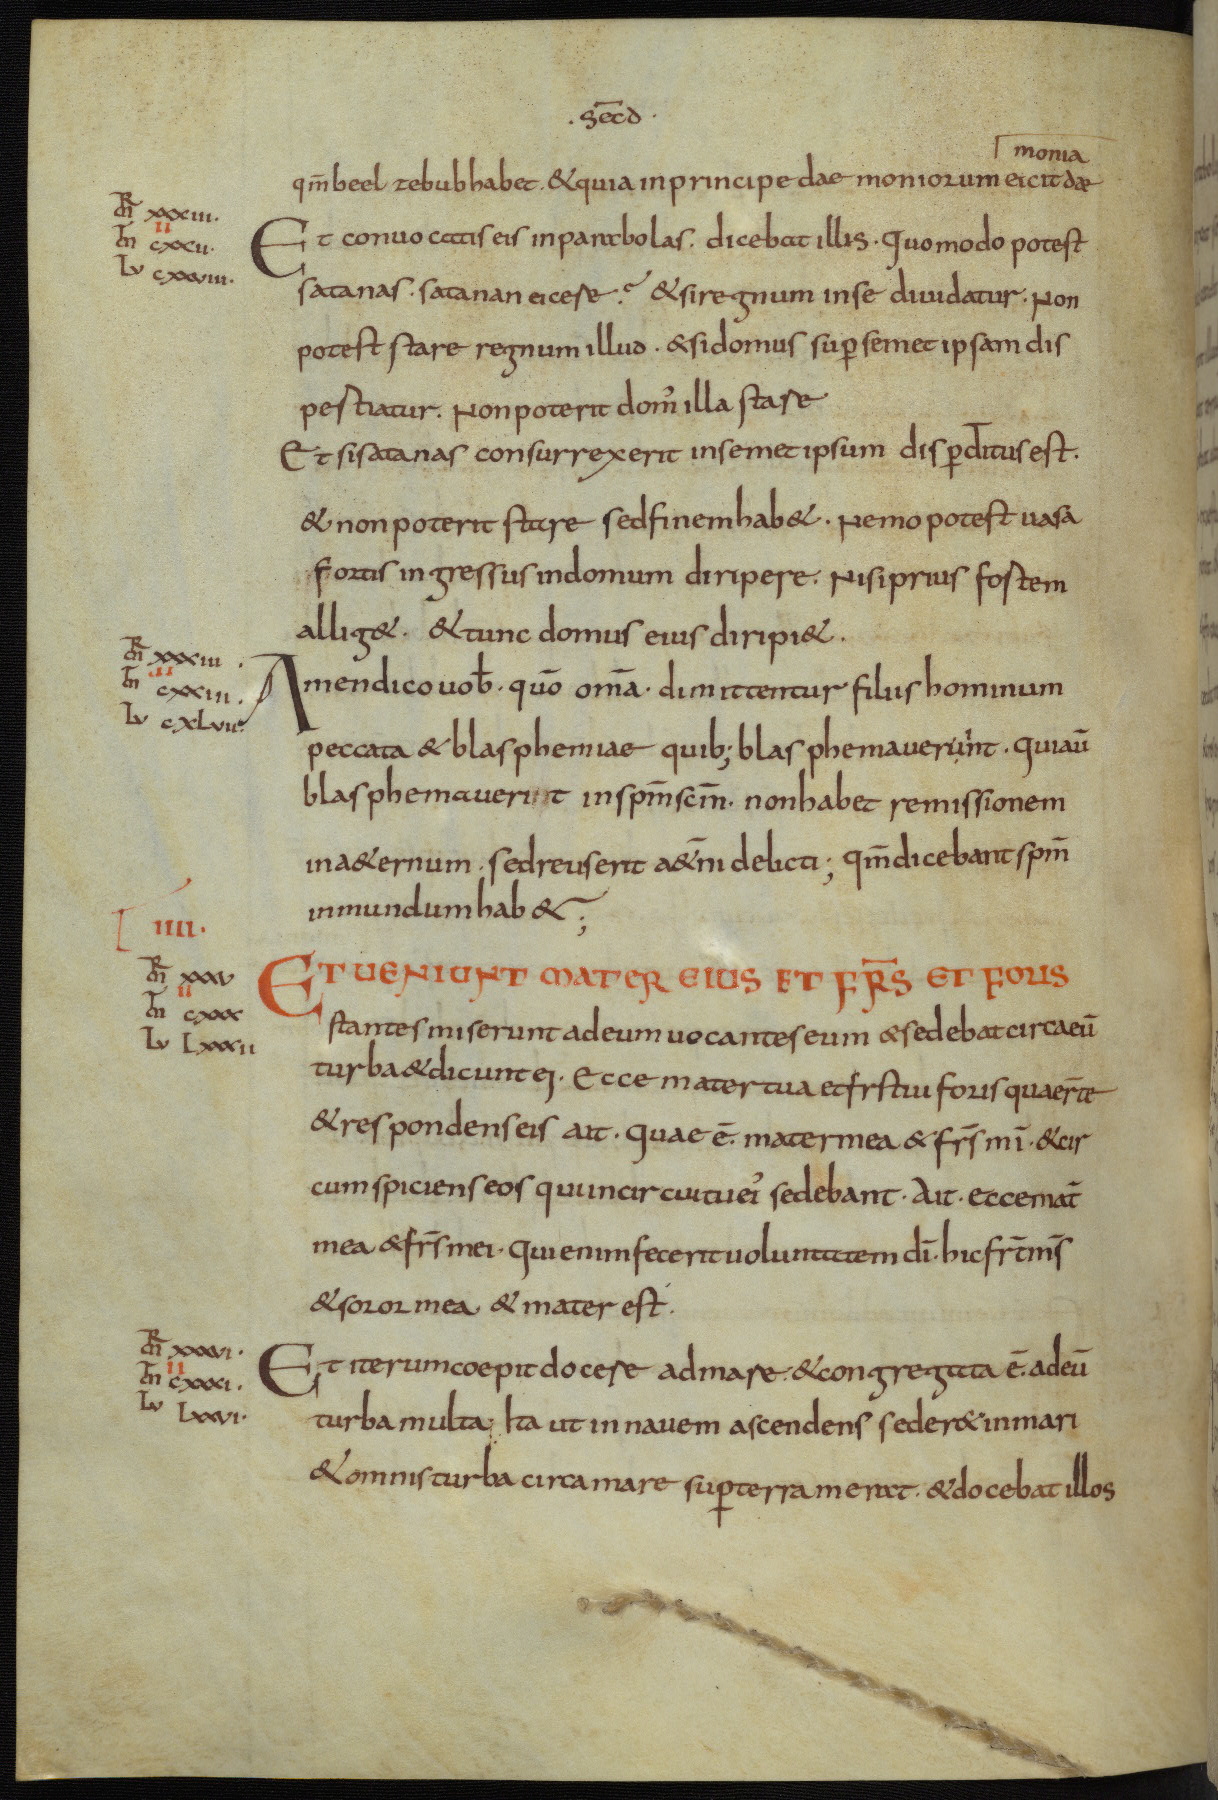 . Sēcd .
monia
qm̄ beelzebub habet. & quia in principe daemoniorum eicit dae
m̄ xxxiii.
ii
m̄ cxxii.
Lv cxxviii.
Et conuocatis eis in parabolas. dicebat illis. Quomodo potest
satanas. satanan eicere. & si regnum in se diuidatur. Non
potest stare regnum illud. & si domus sup semet ipsam dis
pertiatur. Non poterit dom' illa stare
Et si satanas consurrexerit in semet ipsum disp̄ditus est.
& non poterit stare sed finem hab&. Nemo potest uasa
fortis ingressus in domum diripere. Nisi prius fortem
allig&. & tunc domus eius diripi&.
m̄ xxxiiii.
ii
m̄ cxxiii.
Lv cxLvii.
Amen dico uob̄. quō om̄a. dimittentur filiis hominum
peccata & blasphemiae quib; blasphemauerunt. Qui aū
blasphemauerint in spm̄ scm̄. non habet remissionem
in a&ernum. sed reus erit a&n̄i delicti; qm̄ dicebant spm̄
inmundum hab&;
iiii.
m̄ xxxv
ii
m̄ cxxx
Lv Lxxxii
ET UENIUNT MATER EIUS ET FR̄S ET FORIS
stantes miserunt ad eum uocantes eum & sedebat circa eū
turba & dicunt ei. Ecce mater tua et frs tui foris quaer̄te
& respondens eis ait. Quae ē. mater mea & fr̄s mī. & cir
cumspiciens eos qui in circuitu ei' sedebant. Ait. ecce mat̄
mea & fr̄s mei. Qui enim fecerit uoluntatem dī. hic fr̄ m̄s
& soror mea & mater est.
m̄ xxxvi.
ii
m̄ cxxxi.
Lv Lxxvi.
Et iterum coepit docere ad mare. & congregata ē. ad eū
turba multa; Ita ut in nauem ascendens seder& in mari
& omnis turba circa mare sup terram erat. & docebat illos